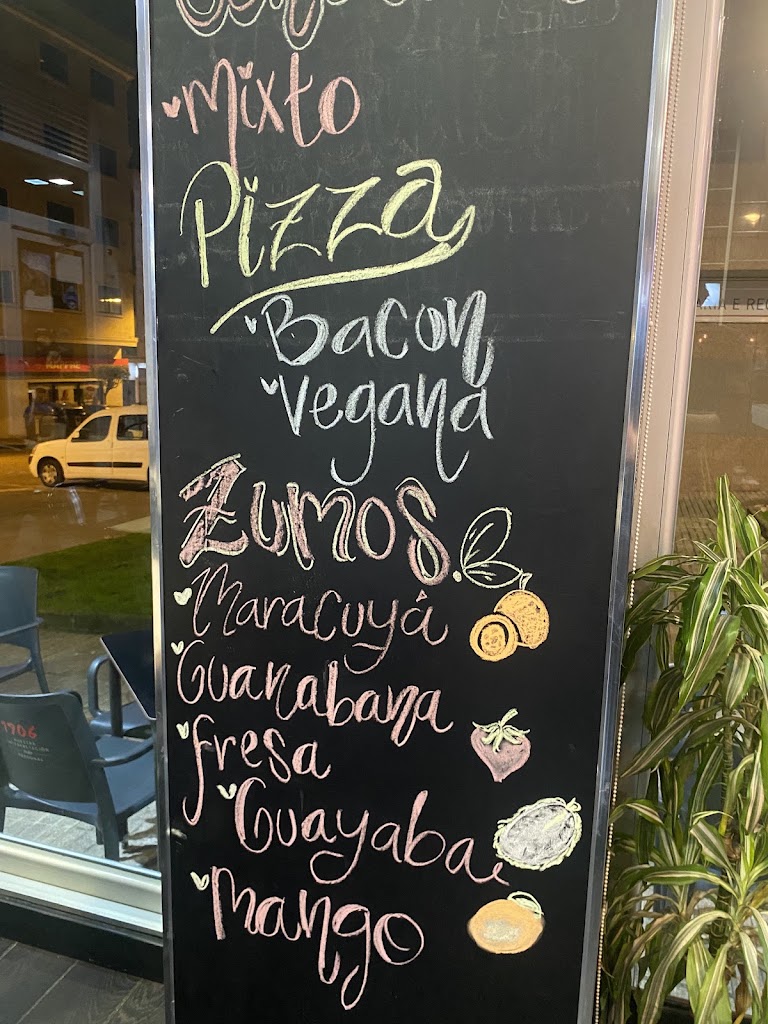 Mixto
Pizza
Bacon
Vegana
Zumos.
Maracuyá
Guanabana
fresa
Guayaba
Mango
1906